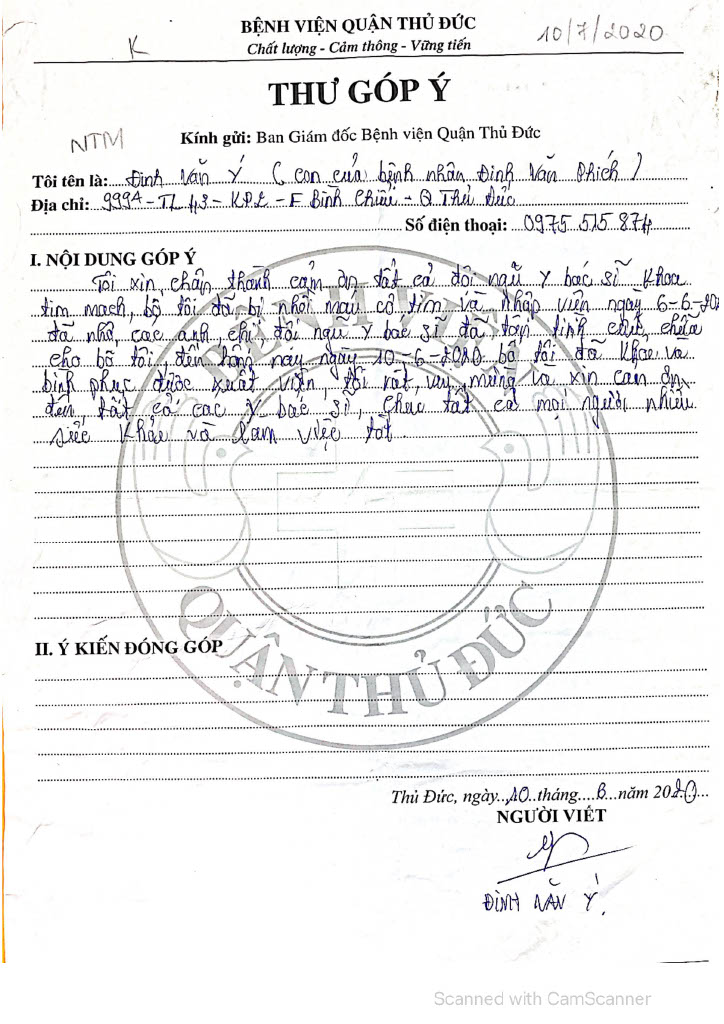 BỆNH VIỆN QUẬN THỦ ĐỨC
Chất lượng - Cảm thông - Vững tiến
10/7/2020
K
THƯ GÓP Ý
NTM
Kính gửi: Ban Giám đốc Bệnh viện Quận Thủ Đức
Tôi tên là: Đinh Văn Ý ( con của bệnh nhân Đinh Văn Phích )
Địa chỉ: 999A - TL 43 - KP2 - F Bình Chiểu - Q Thủ Đức
Số điện thoại: 0975 515 874
I. NỘI DUNG GÓP Ý
Tôi xin chân thành cảm ơn tất cả đội ngũ y bác sĩ khoa
tim mạch, bố tôi đã bị nhồi máu cơ tim và nhập viện ngày 6-6-20
đã nhờ các anh, chị, đội ngũ y bác sĩ đã tận tình cứu, chữa
cho bố tôi, đến hôm nay ngày 10-6-2020 bố tôi đã khỏe và
bình phục được xuất viện, tôi rất vui mừng và xin cảm ơn
đến tất cả các y bác sĩ, chúc tất cả mọi người nhiều
sức khỏe và làm việc tốt.
II. Ý KIẾN ĐÓNG GÓP
BỆNH VIỆN
QUẬN THỦ ĐỨC
Thủ Đức, ngày 10 tháng 6 năm 2020
NGƯỜI VIẾT
ĐINH VĂN Ý
Scanned with CamScanner